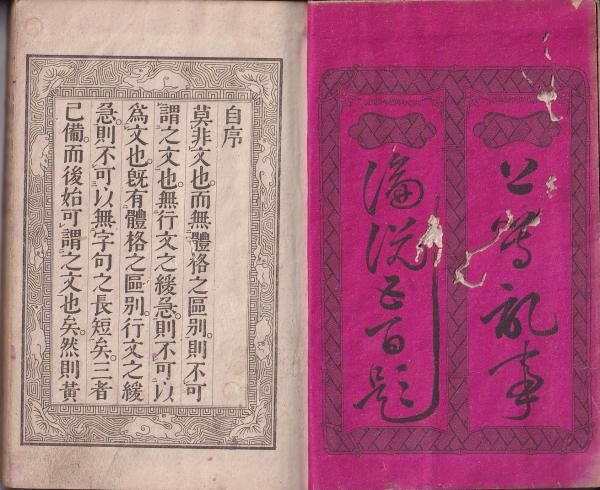 記事
論説五百題
自序
莫非文也。而無體格之區别。則不可
謂之文也。無行文之緩急。則不可以
爲文也。既有體格之區别。行文之緩
急。則不可以無字句之長短矣。三者
已備。而後始可謂之文也矣。然則黄